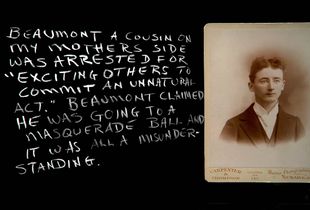 BEAUMONT A COUSIN ON
MY MOTHERS SIDE
WAS ARRESTED FOR
"EXCITING OTHERS TO
COMMIT AN UNNATURAL
ACT." BEAUMONT CLAIMED
HE WAS GOING TO A
MASQUERADE BALL AND
IT WAS ALL A MISUNDER-
STANDING.
CARPENTER &